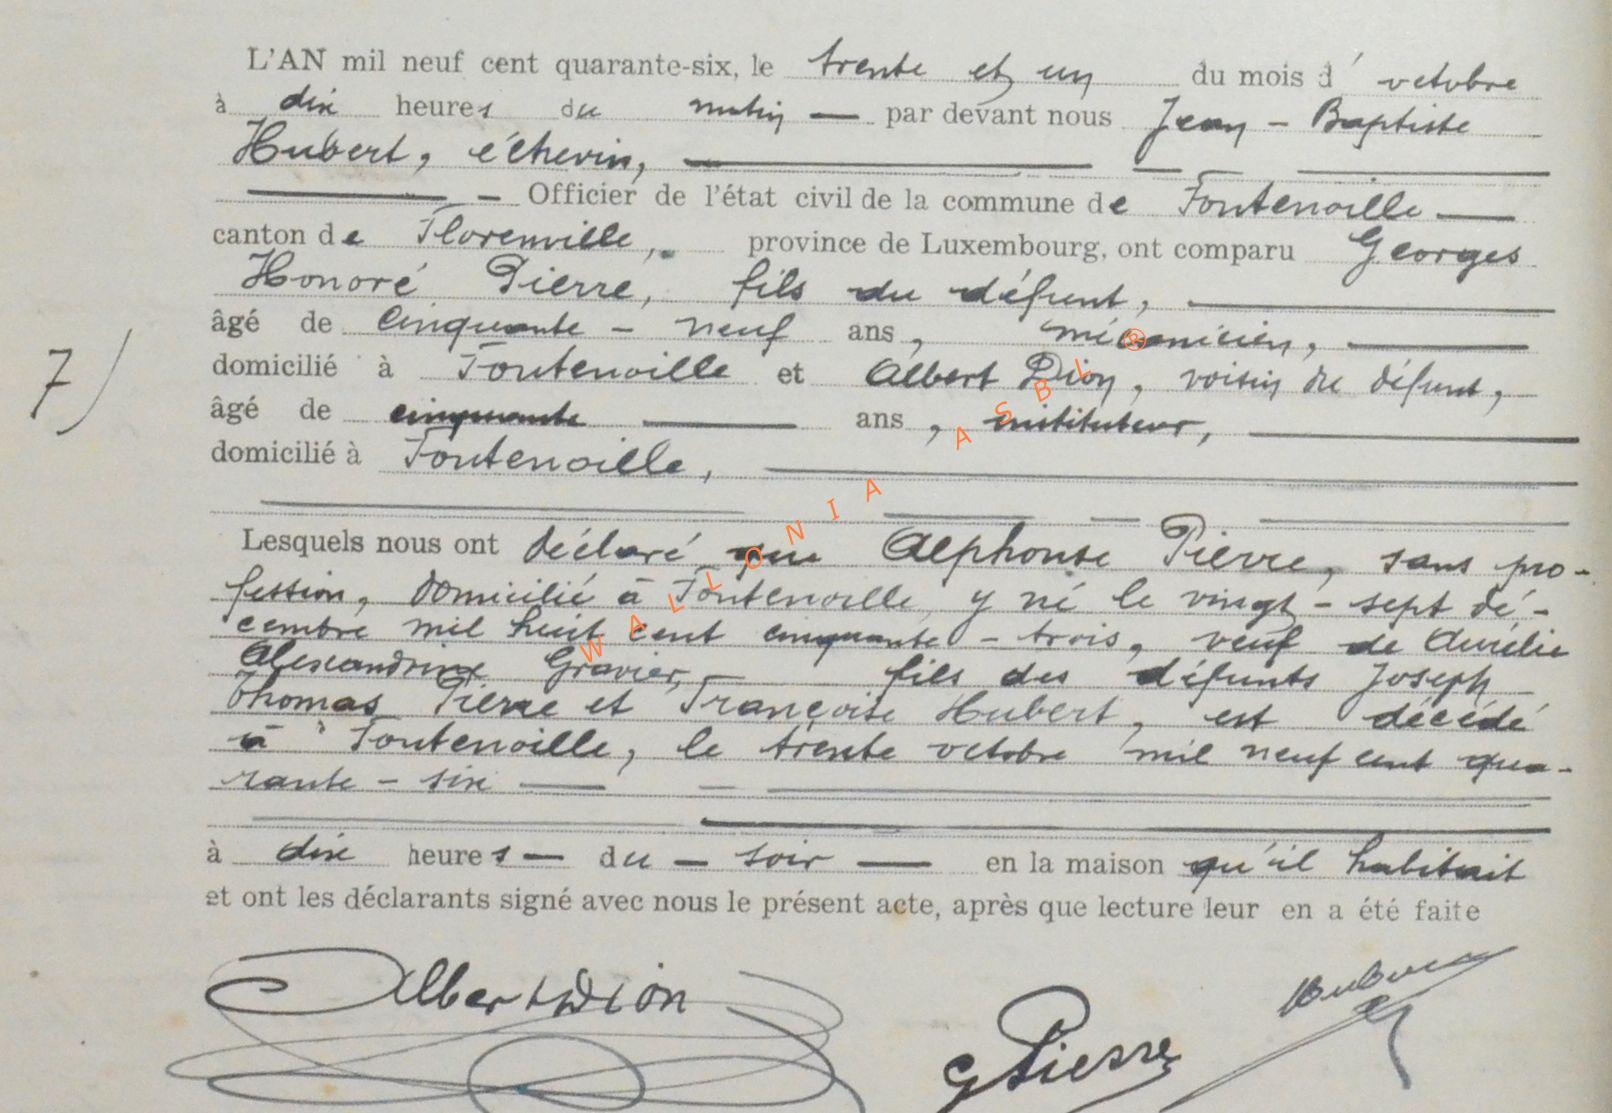 L'AN mil neuf cent quarante-six, le trente et un du mois d' octobre
à dix heures du matin — par devant nous Jean - Baptiste
Hubert, échevin,
— Officier de l'état civil de la commune de Fontenoille —
canton de Florenville, province de Luxembourg, ont comparu Georges
Honoré Pierre, fils du défunt,
âgé de cinquante - neuf ans, mécanicien,
domicilié à Fontenoille et Albert Dion, voisin du défunt,
7) âgé de cinquante — ans, instituteur,
domicilié à Fontenoille,
Lesquels nous ont déclaré que Alphonse Pierre, sans pro-
fession, domicilié à Fontenoille, y né le vingt - sept dé-
cembre mil huit cent cinquante - trois, veuf de Aurélie
Alexandrine Gravier, — fils des défunts Joseph
Thomas Pierre et Françoise Hubert, est décédé
à Fontenoille, le trente octobre mil neuf cent qua-
rante - six —
à dix heures — du — soir — en la maison qu'il habitait
et ont les déclarants signé avec nous le présent acte, après que lecture leur en a été faite
Albert Dion
G Pierre
Hubert
WALLONIA ASBL ®